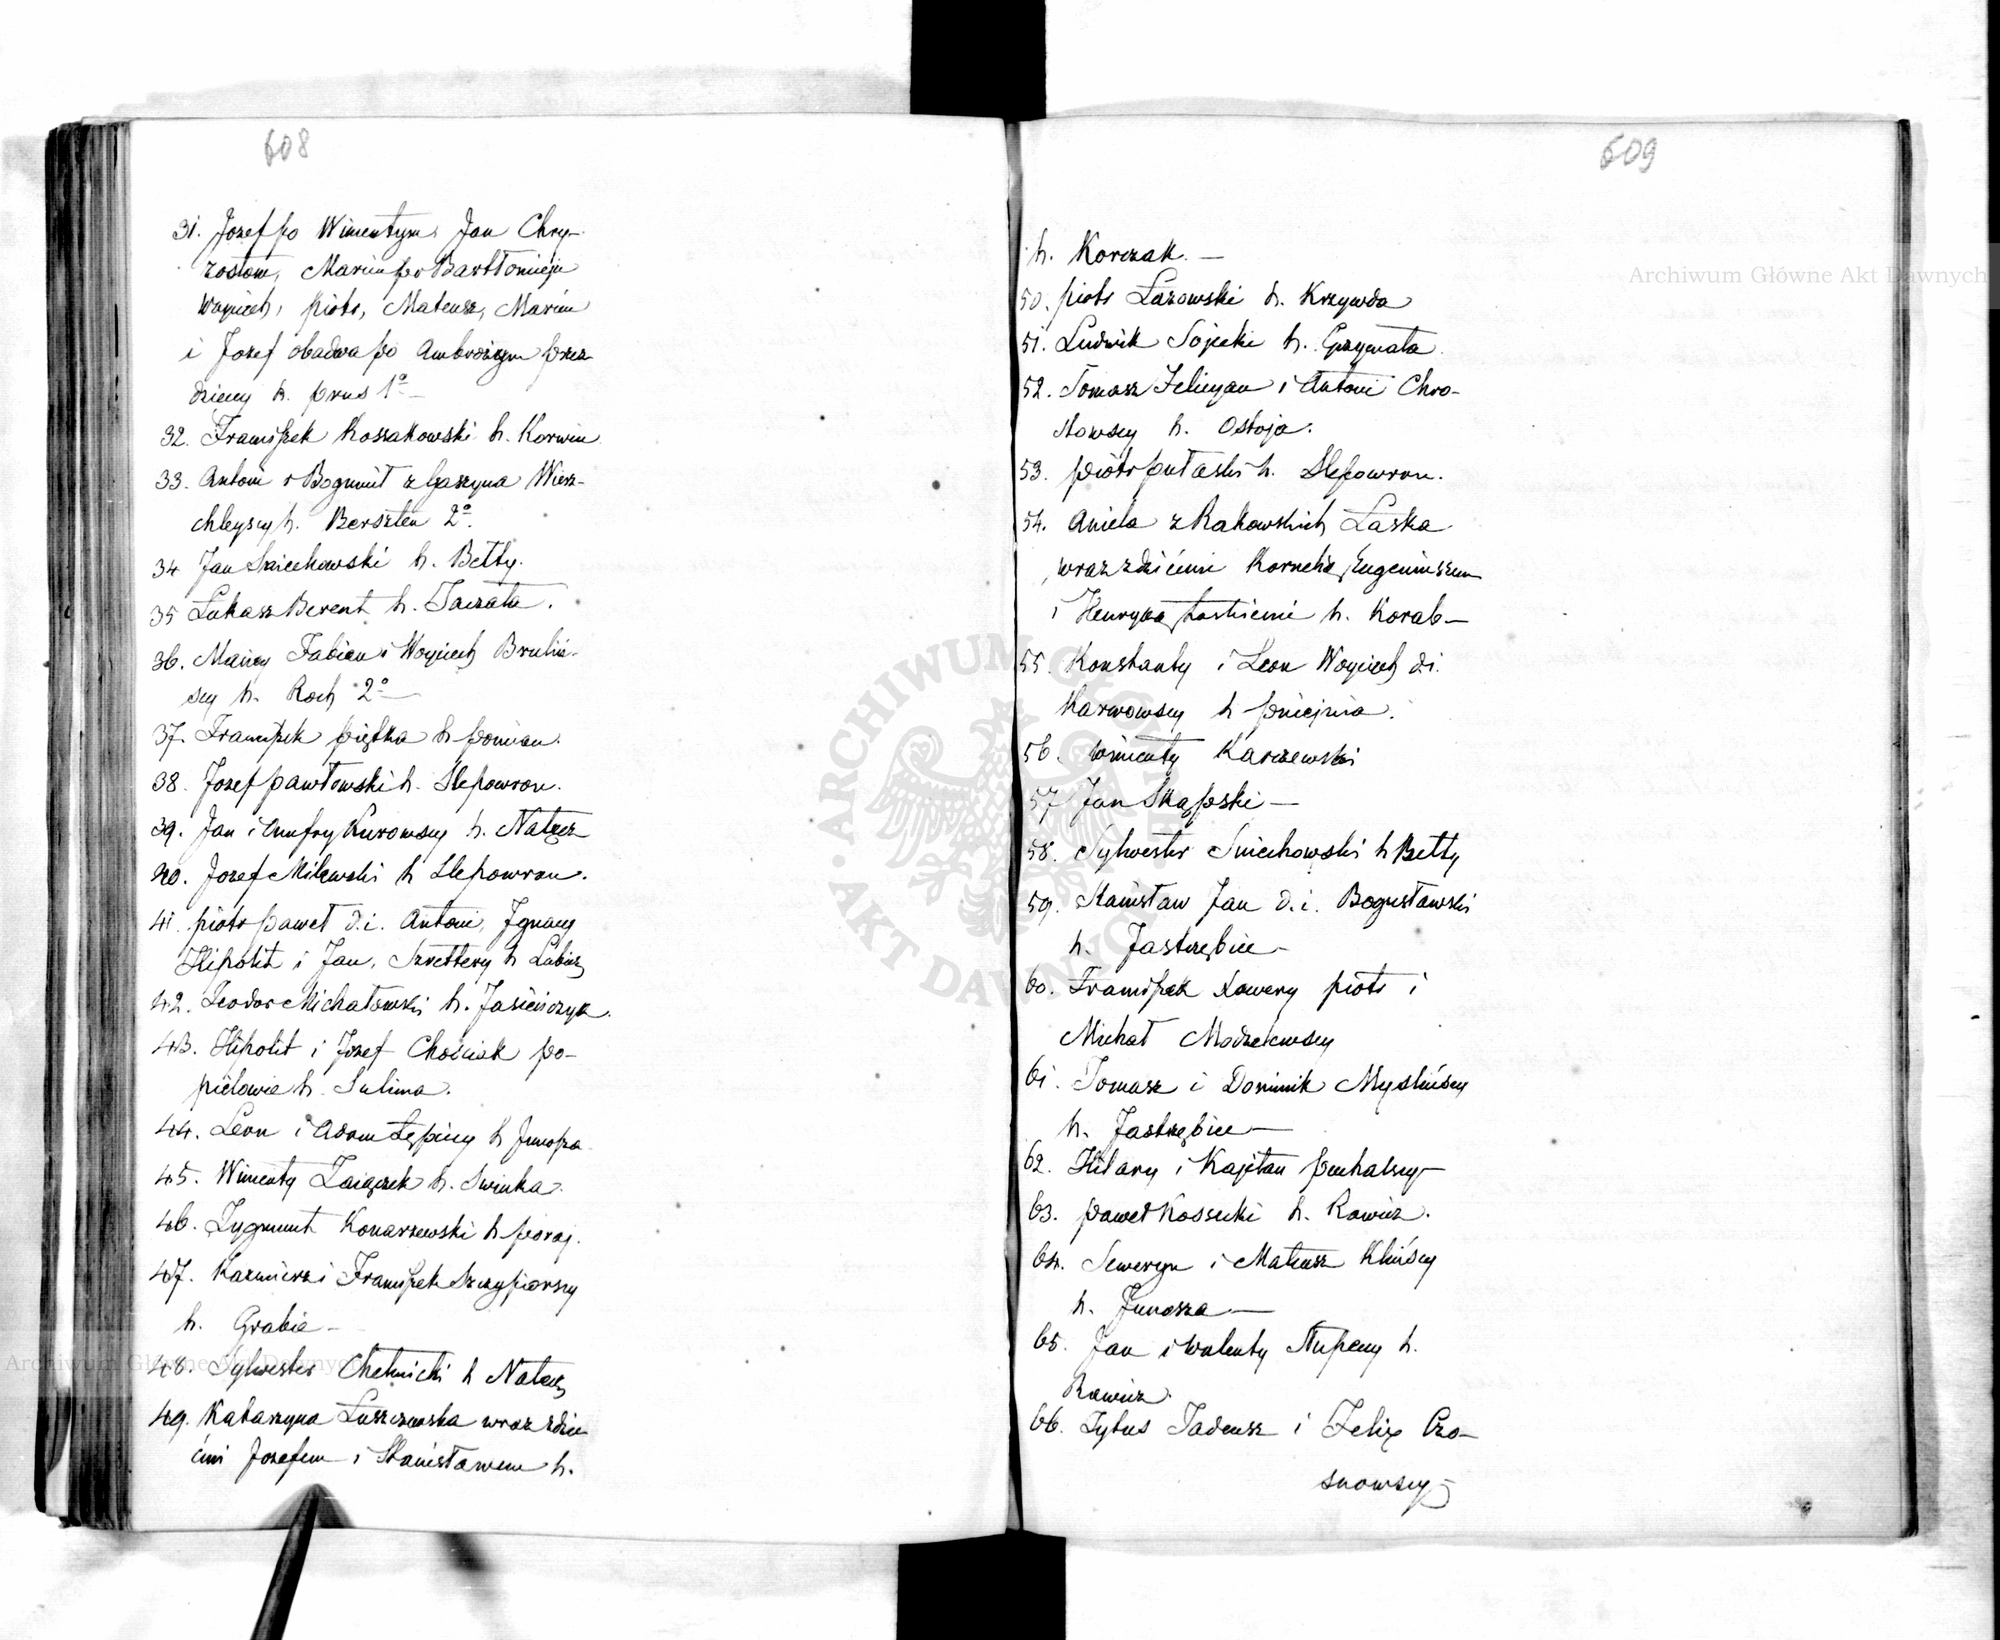 608
31. Jozef po Wincentym Jan Chry-
zostom, Marcin po Bartłomieju
Woyciech, Piotr, Mateusz, Marcin
i Jozef obadwa po Ambrożym Prza-
dzieccy h. Prus 1º
32. Franciszek Kossakowski h. Korwin
33. Antoni i Bogumił z Gaszyna Wierz-
chleyscy h. Berszten 2º.
34 Jan Smiechowski h. Bełty.
35 Łukasz Berent h. Taczała.
36. Maciey Fabian i Woyciech Bruliń-
scy h. Roch 2º
37. Franciszek Piętka h Pomian.
38. Jozef Pawłowski h. Slepowron.
39. Jan i Onufry Kurowscy h. Nałęcz
40. Jozef Milewski h Slepowron.
41. Piotr Paweł d.i. Antoni, Ignacy
Hipolit i Jan, Szrettery h Lubicz
42. Teodor Michałowski h. Jasieńczyk.
43. Hipolit i Jozef Chościak Po-
pielowie h. Sulima.
44. Leon i Adam Łępiccy h Junosza
45. Wincenty Zaiączek h. Swinka.
46. Zygmunt Konarzewski h Poraj.
47. Kazmierz i Franciszek Szczypiorscy
h. Grabie
48. Sylwester Chełmicki h Nałęcz
49. Katarzyna Łuszczewska wraz z dzie-
ćmi Jozefem i Stanisławem h.
609
h. Korczak.
50. Piotr Łazowski h. Krzywda
51. Ludwik Sojecki h. Grzymała
52. Tomasz Felicyan i Antoni Chro-
stowscy h. Ostoja.
53. Piotr Pułaski h. Slepowron.
54. Aniela z Rakowskich Łaska
wraz z dziećmi Kornelią, Eugeniuszem
i Henryką Łaskiemi h. Korab
55. Konstanty i Leon Woyciech d.i.
Karwowscy h Pniejnia.
56. Wincenty Karczewski
57 Jan Skąpski
58. Sylwester Smiechowski h Bełty
59. Stanisław Jan d.i. Bogusławski
h. Jastrzębiec
60. Franciszek Xawery Piotr i
Michał Modzelewscy
61. Tomasz i Dominik Myslińscy
h. Jastrzębiec
62. Hilary i Kajetan Puchalscy
63. Paweł Kossecki h. Rawicz.
64. Seweryn i Mateusz Klińscy
h. Junosza
65. Jan i Walenty Stupeccy h.
Rawicz.
66. Tytus Tadeusz i Felix Czo-
snowscy
Archiwum Główne Akt Dawnych
Archiwum Główne Akt Dawnych